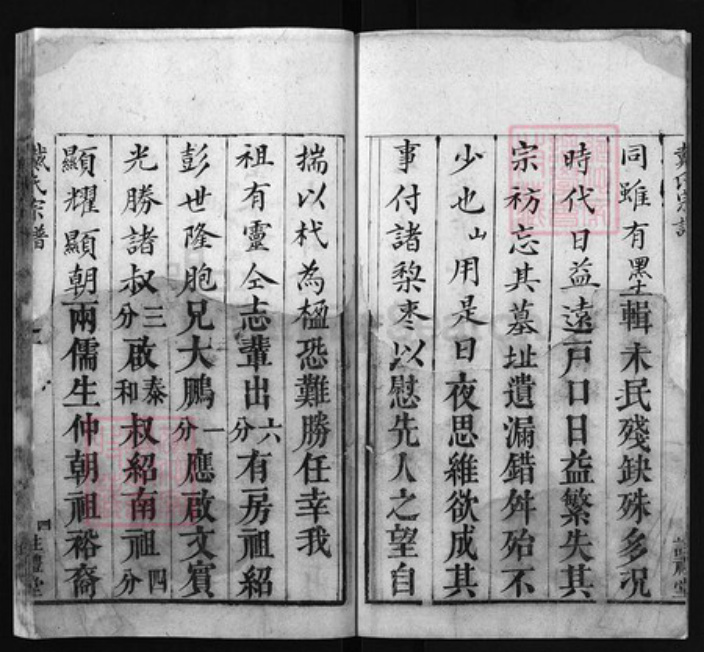 同雖有墨輯未民殘缺殊多況
時代日益遠戶口日益繁失其
宗祊忘其墓址遺漏錯舛殆不
少也用是日夜思維欲成其
事付諸棃枣以慰先人之望自
揣以杙為楹恐難勝任幸我
祖有靈仝志輩出六分有房祖紹
彭世隆胞兄大鵬一分應啟文賓
光勝諸叔三分啟泰和叔紹南祖四分
顯耀顯朝兩儒生仲朝祖裕裔
戴氏宗譜
四